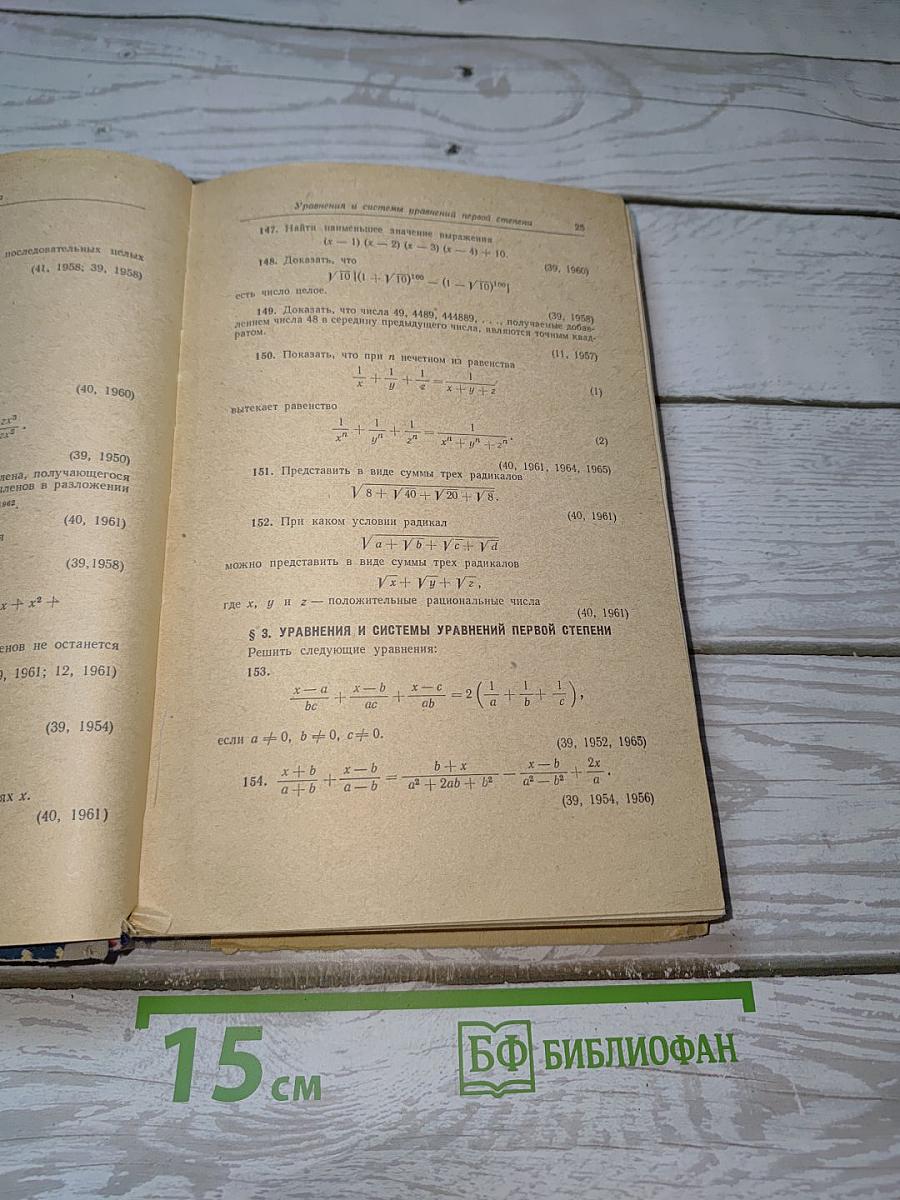 последовательных целых
(41, 1958; 39, 1958)
(40, 1960)
(39, 1950)
получающегося
в разложении
(40, 1961)
(39,1958)
x + x² +
не останется
1961; 12, 1961)
(39, 1954)
x.
(40, 1961)
Уравнения и системы уравнений первой степени 25
147. Найти наименьшее значение выражения
(x — 1) (x — 2) (x — 3) (x — 4) + 10.
(39, 1960)
148. Доказать, что
√10 [(1 + √10)¹⁰⁰ — (1 — √10)¹⁰⁰]
есть число целое.
(39, 1958)
149. Доказать, что числа 49, 4489, 444889, . . ., получаемые добав-
лением числа 48 в середину предыдущего числа, являются точным квад-
ратом.
(11, 1957)
150. Показать, что при n нечетном из равенства
1/x + 1/y + 1/z = 1/(x + y + z) (1)
вытекает равенство
1/xⁿ + 1/yⁿ + 1/zⁿ = 1/(xⁿ + yⁿ + zⁿ). (2)
(40, 1961, 1964, 1965)
151. Представить в виде суммы трех радикалов
√(8 + √40 + √20 + √8).
(40, 1961)
152. При каком условии радикал
√(a + √b + √c + √d)
можно представить в виде суммы трех радикалов
√x + √y + √z,
где x, y и z — положительные рациональные числа
(40, 1961)
§ 3. УРАВНЕНИЯ И СИСТЕМЫ УРАВНЕНИЙ ПЕРВОЙ СТЕПЕНИ
Решить следующие уравнения:
153.
(x — a)/bc + (x — b)/ac + (x — c)/ab = 2 (1/a + 1/b + 1/c),
если a ≠ 0, b ≠ 0, c ≠ 0.
(39, 1952, 1965)
154. (x + b)/(a + b) + (x — b)/(a — b) = (b + x)/(a² + 2ab + b²) — (x — b)/(a² — b²) + 2x/a.
(39, 1954, 1956)
15 см
БФ БИБЛИОФАН